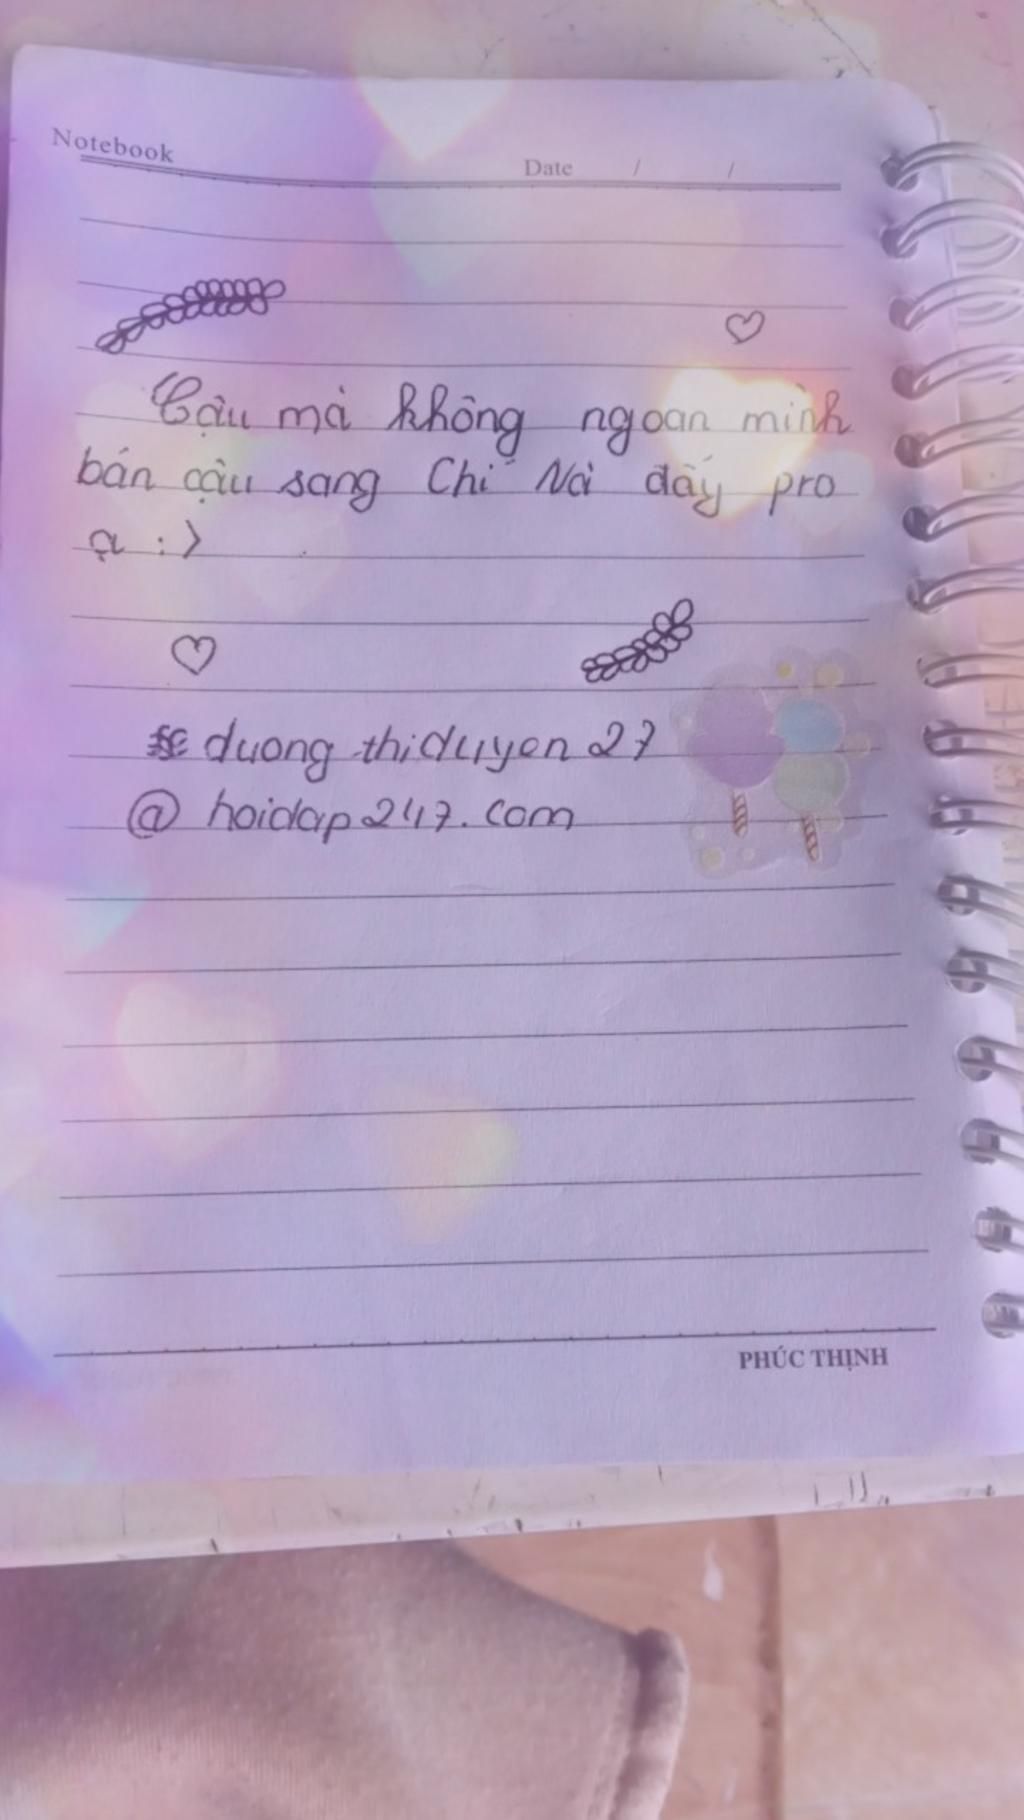 Notebook
Date / /
Cậu mà không ngoan mình
bán cậu sang Chi Nà đấy pro
ạ :>
duongthiduyen27
@ hoidap247.com
PHÚC THỊNH